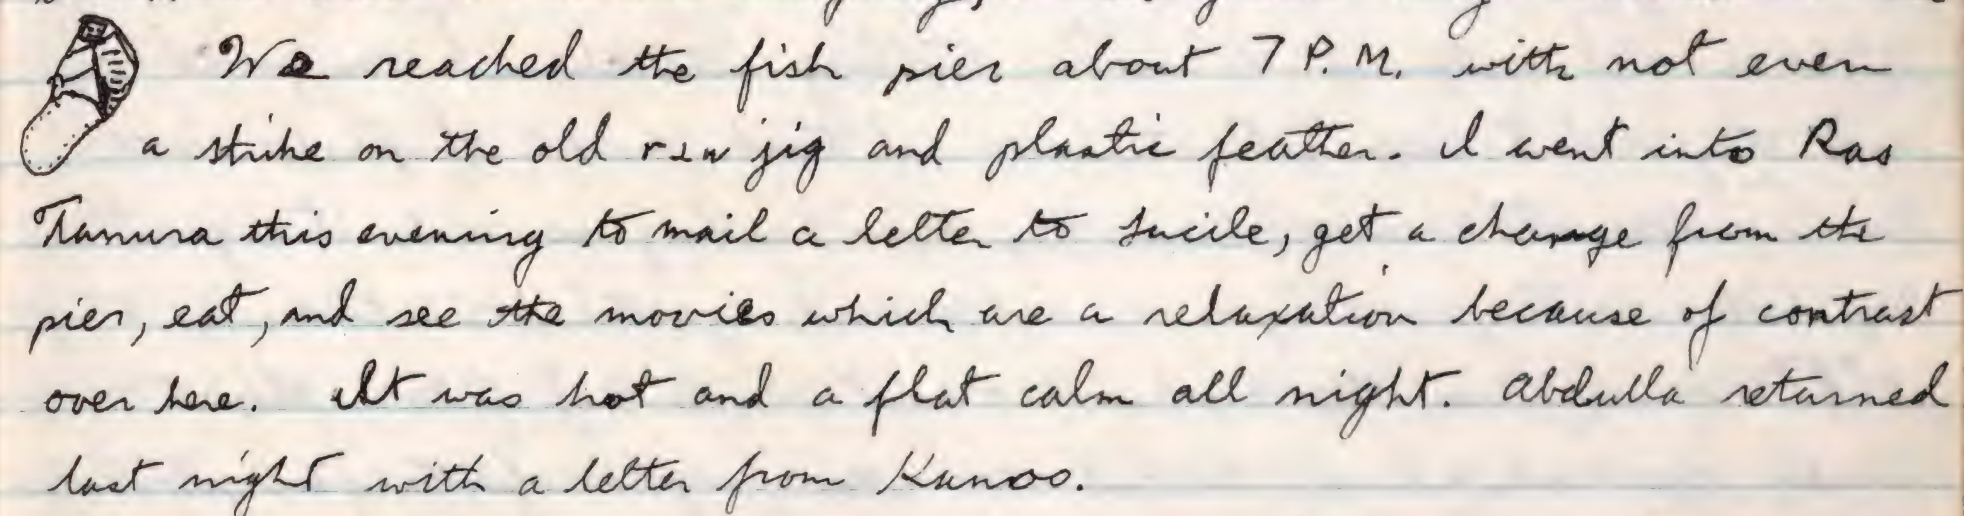 We reached the fish pier about 7 P.M. with not even
a strike on the old r+w jig and plastic feather. I went into Ras
Tanura this evening to mail a letter to Lucile, get a change from the
pier, eat, and see the movies which are a relaxation because of contrast
over here. It was hot and a flat calm all night. Abdulla returned
last night with a letter from Kanoo.